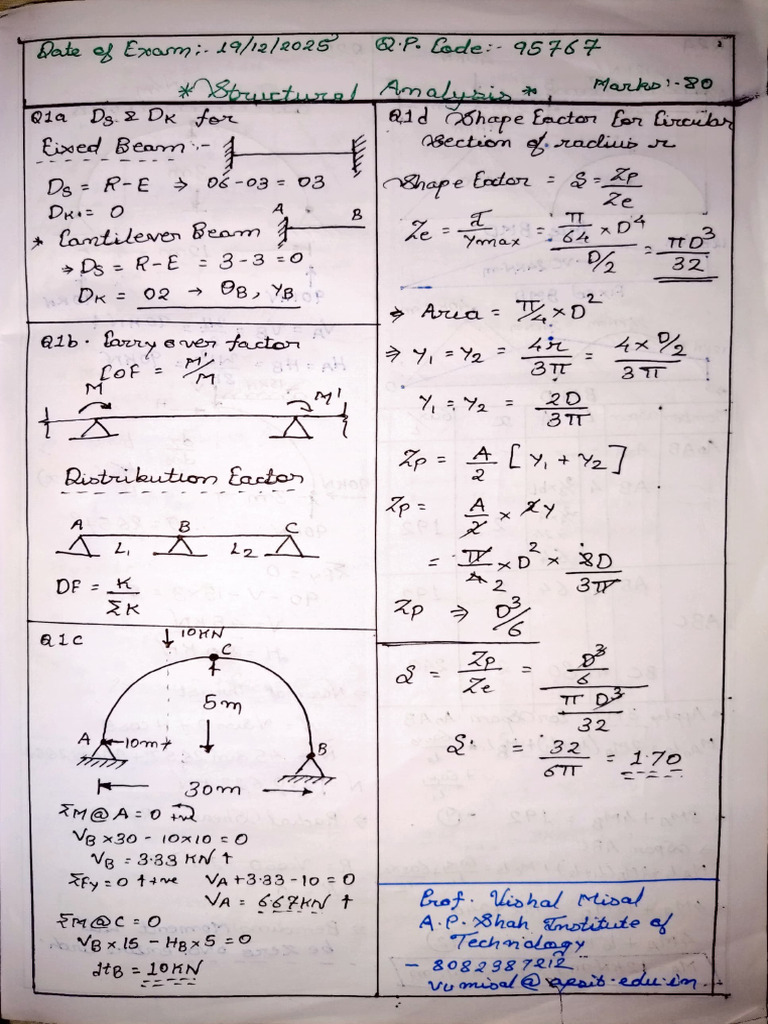 Date of Exam:- 19/12/2025 Q.P. Code:- 95767
* Structural Analysis *
Marks:- 80
Q1a Ds & Dk for
Fixed Beam :-
Ds = R-E → 06-03 = 03
Dk = 0
* Cantilever Beam
A B
→ Ds = R-E = 3-3 = 0
Dk = 02 → θB, YB
Q1b. Carry over factor
COF = M'/M
M M'
Distribution Factor
A B C
L1 L2
DF = K/ΣK
Q1c
10KN
C
5m
A 10m B
30m
ΣM@A = 0 +ve
VB×30 - 10×10 = 0
VB = 3.33 KN ↑
ΣFy = 0 ↑+ve VA+3.33-10 = 0
VA = 6.67KN ↑
ΣM@C = 0
VB×15 - HB×5 = 0
HB = 10KN
Q1d Shape Factor For Circular
Section of radius r
Shape Factor = S = Zp/Ze
Ze = I/Ymax = (π/64 × D⁴)/(D/2) = πD³/32
→ Area = π/4 × D²
→ Y1 = Y2 = 4r/3π = (4×D/2)/3π
Y1 = Y2 = 2D/3π
Zp = A/2 [Y1 + Y2]
Zp = A/2 × 2Y
= π/4 2 × D² × 2D/3π
Zp → D³/6
S = Zp/Ze = (D³/6)/(πD³/32)
S = 32/6π = 1.70
Prof. Vishal Misal
A.P. Shah Institute of
Technology
- 8082987212
vvmisal@apsit.edu.in